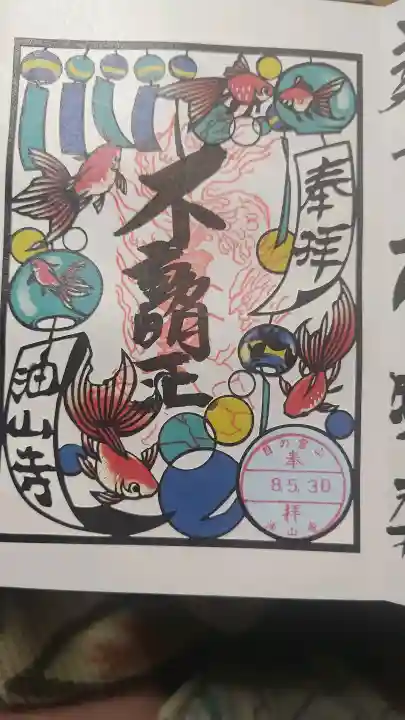 奉拝
不動明王
油山寺
目の霊山
奉
8.5.30
拝
油山寺